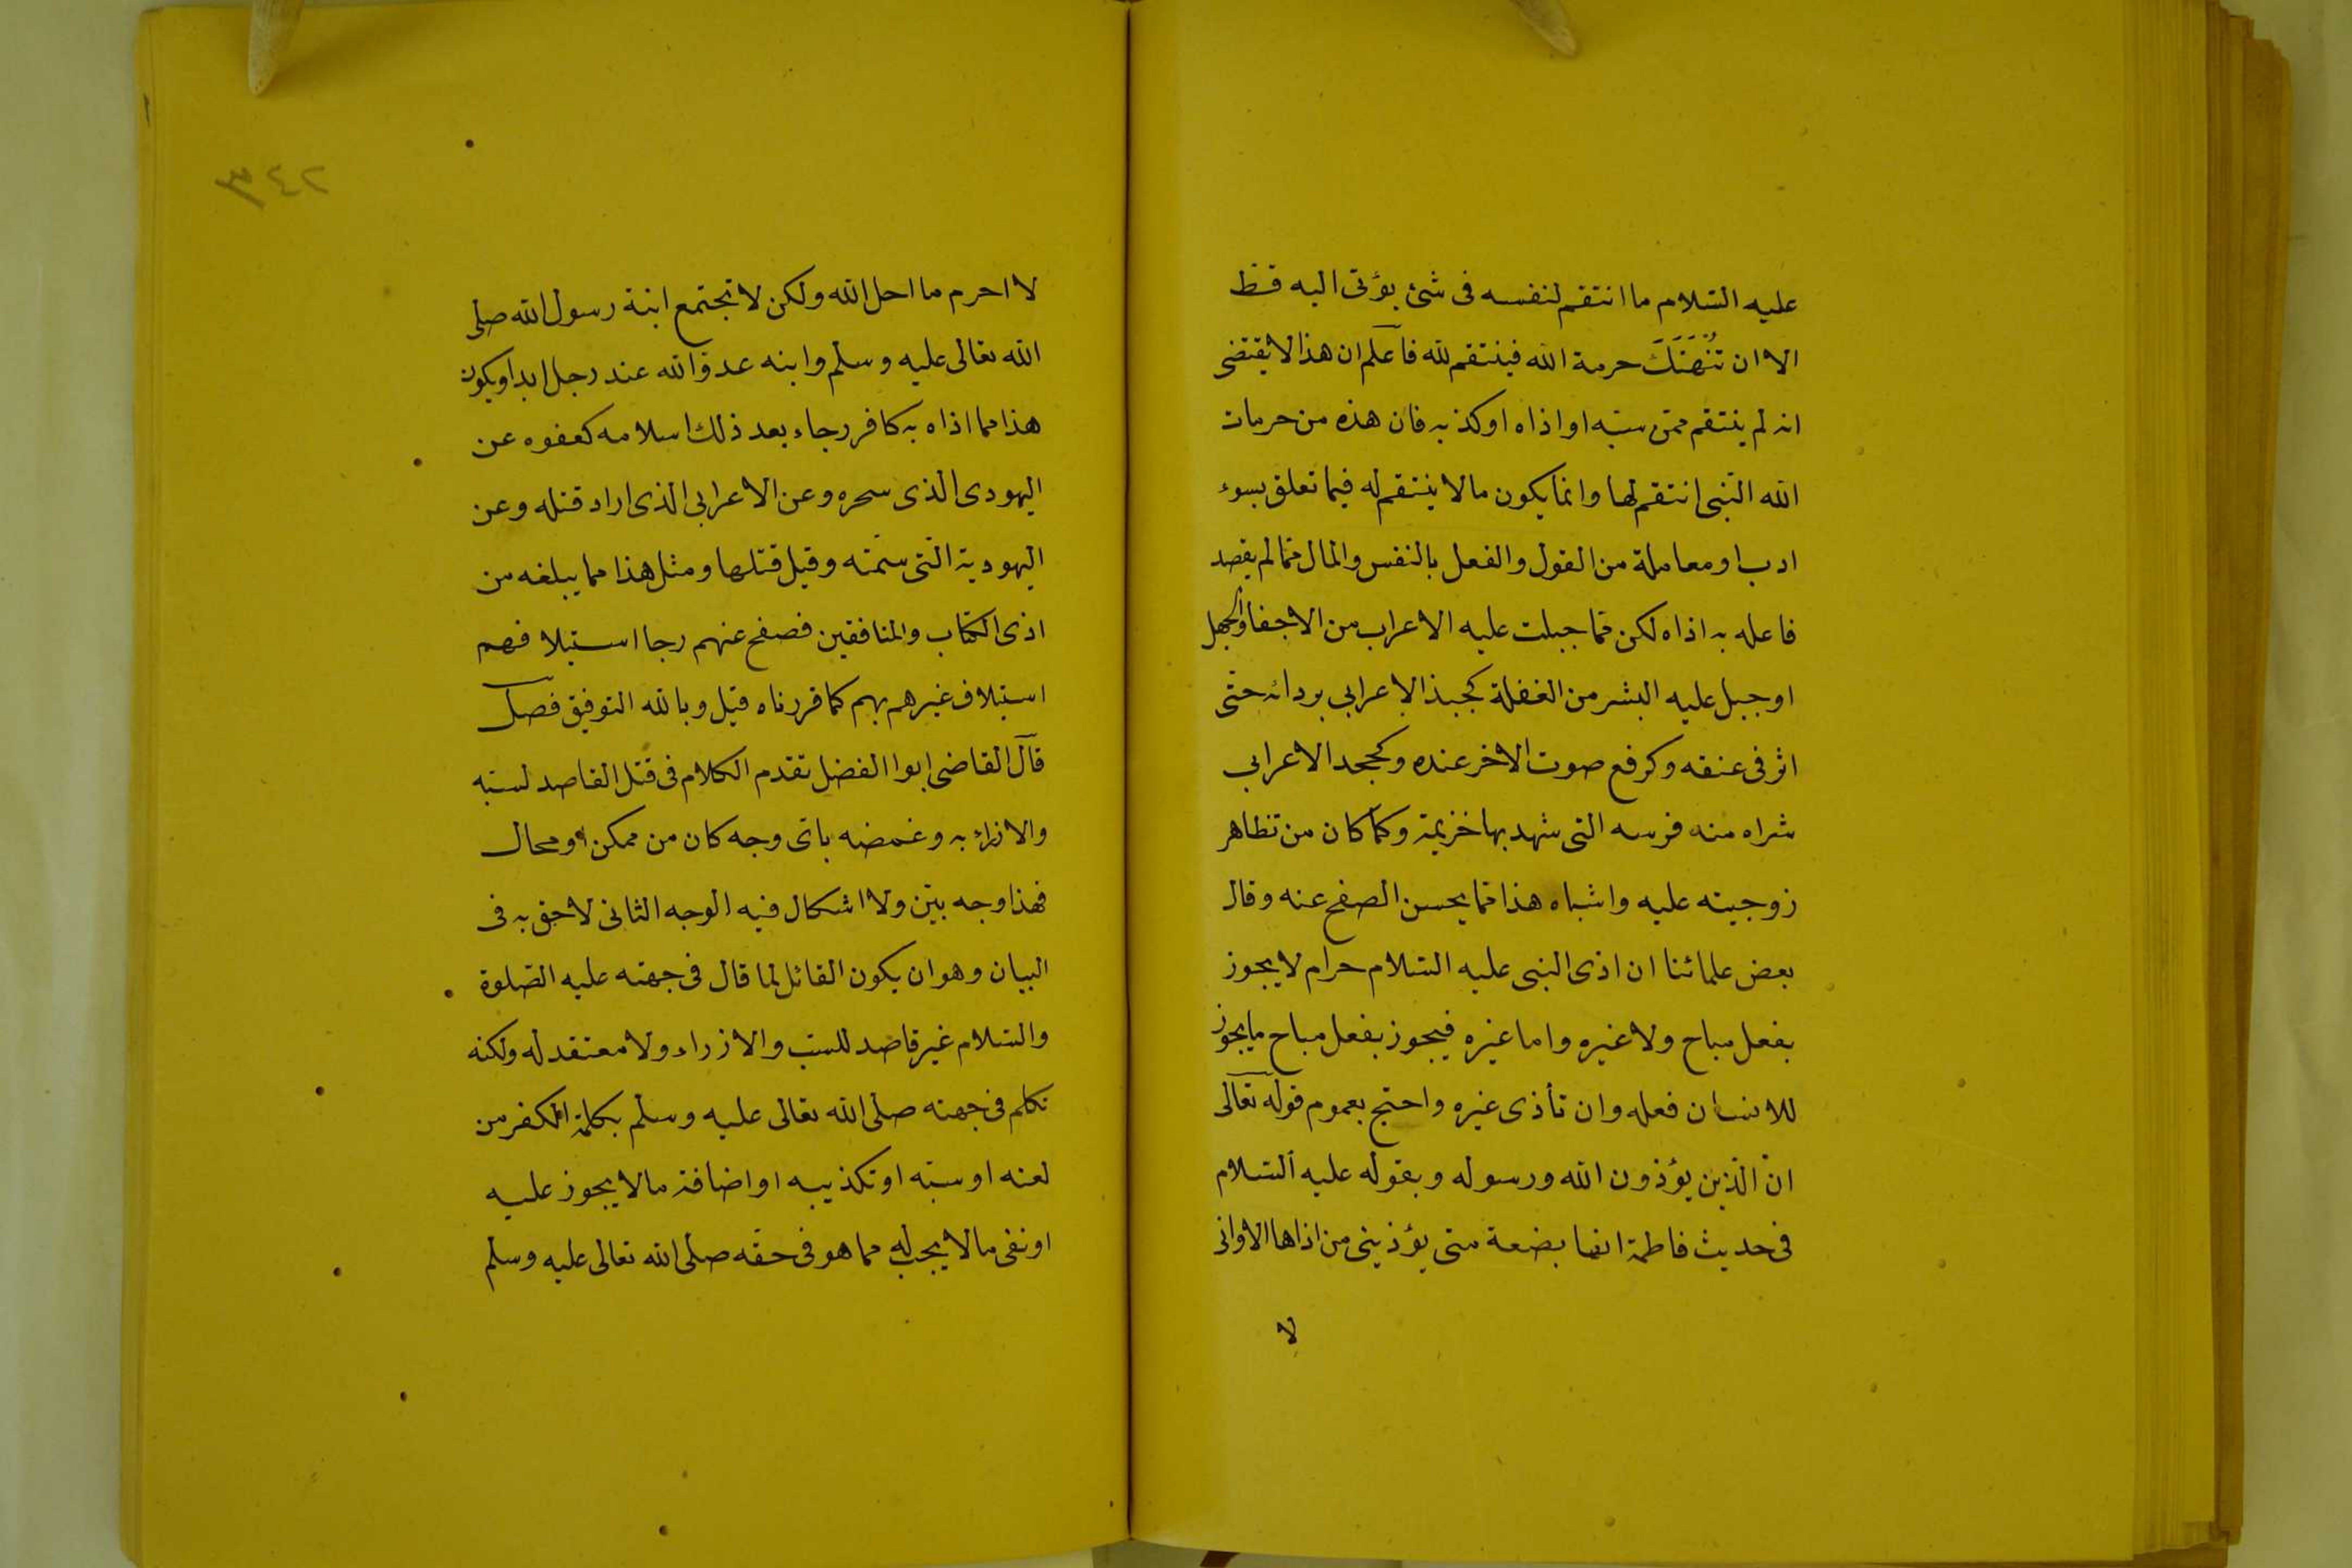 عليه السّلام ما انتقم لنفسه فى شئ يؤتى اليه قط
الا ان تُنْهَتَكَ حرمة الله فينتقم لله فاعلم ان هذا لا يقتضى
انه لم ينتقم ممّن سبّه او اذاه او كذبه فان هذه من حرمات
الله التى انتقم لها وانما يكون مالا ينتقم له فيما تعلق بسوء
ادب او معاملة من القول والفعل بالنفس والمال ممّا لم يقصد
فاعله به اذاه لكن ممّا جبلت عليه الاعراب من الاجفا والجهل
او جبل عليه البشر من الغفلة كجبذ الاعرابي بردائه حتّى
اثر فى عنقه وكرفع صوت الاخر عنده وكجحد الاعرابي
شراه منه فرسه التى شهد بها خزيمة وكما كان من تظاهر
زوجيته عليه واشباه هذا ممّا يحسن الصفح عنه وقال
بعض علمائنا ان اذى النبى عليه السّلام حرام لا يجوز
بفعل مباح ولا غيره واما غيره فيجوز بفعل مباح ما يجوز
للانسان فعله وان تأذى غيره واحتج بعموم قوله تعالى
انّ الّذين يؤذون الله ورسوله وبقوله عليه السّلام
فى حديث فاطمة انها بضعة منى يؤذينى من اذاها الا وانى
لا
لا احرم ما احل الله ولكن لا تجتمع ابنة رسول الله صلى
الله تعالى عليه وسلم وابنه عدوّ الله عند رجل ابدا ويكون
هذا مما اذاه به كافر رجاء بعد ذلك اسلامه كعفوه عن
اليهودى الذى سحره وعن الاعرابى الذى اراد قتله وعن
اليهودية الّتى سمّته وقيل قتلها ومثل هذا مما يبلغه من
اذى الكتاب والمنافقين فصفح عنهم رجا استيلافهم
استيلاف غيرهم بهم كما قررناه قبل وبالله التوفيق فصل
قال القاضى ابوا الفضل تقدم الكلام فى قتل القاصد لسبّه
والازراء به وغمضه باىّ وجه كان من ممكن او محال
فهذا وجه بيّن ولا اشكال فيه الوجه الثانى لاحق به فى
البيان وهو ان يكون القائل لما قال فى جهته عليه الصّلوة
والسّلام غير قاصد للسبّ والازراء ولا معتقد له ولكنه
تكلم فى جهته صلى الله تعالى عليه وسلم بكلمة الكفر من
لعنه او سبّه او تكذيبه او اضافة مالا يجوز عليه
او نفى مالا يجب له مما هو فى حقّه صلى الله تعالى عليه وسلم